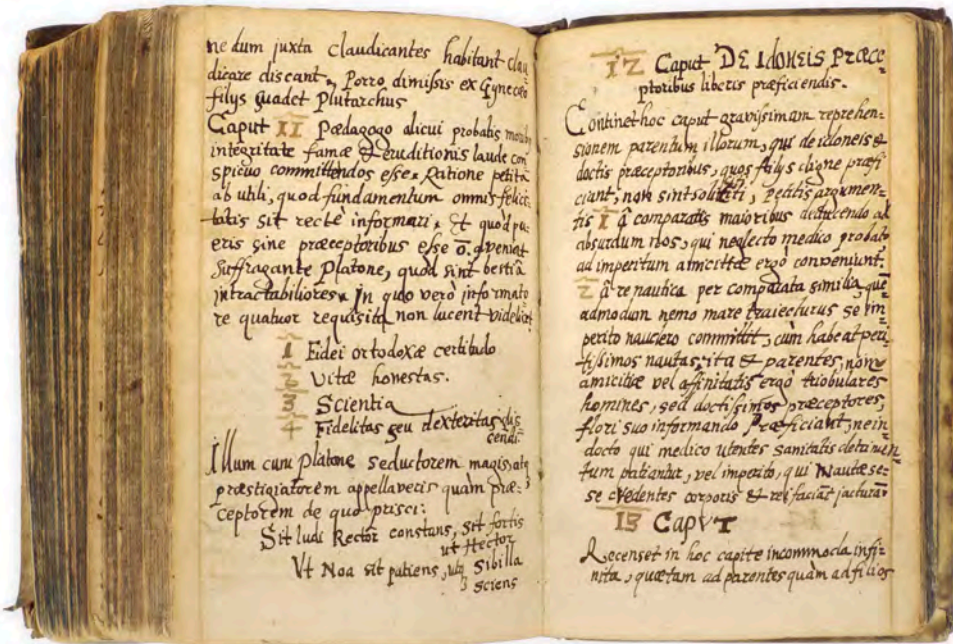 ne dum juxta claudicantes habitant clau-
dicare discant. Porro dimissis ex Gynecæo
filys suadet Plutarchus
Caput 11 Pædagogo alicui probatis moribus
integritate famæ & eruditionis laude con
spicuo committendos esse. Ratione petita
ab utili, quod fundamentum omnis felici:
tatis sit rectè informari. Et quòd pu:
eris sine præceptoribus esse ō. qveniat
suffragante Platone, quòd sint bestiâ
intractabiliores. In quo verò informato
re quatuor requisita non lucent videlicet
1 Fidei ortodoxæ certitudo
2 Vitæ honestas.
3 Scientia
4 Fidelitas seu dexteritas dis
cendi:
Illum cum Platone seductorem magis, atq
præstigiatorem appellaveris quàm præ:
ceptorem de quo prisci:
Sit ludi Rector constans, sit fortis
ut Hector
Vt Noa sit patiens, utq Sibilla
sciens
12 Caput DE IdONEIS Præce:
ptoribus liberis præficiendis.
Continet hoc caput gravissimam reprehen:
sionem parentum illorum, qui de idoneis &
doctis præceptoribus, quos filys digne præfi
ciant, non sint solliciti, Petitis argumen:
tis 1 â comparatis maioribus deducendo ad
absurdum nos, qui neglecto medico probato
ad imperitum amicitiæ ergò conveniunt.
2 â re nautica per comparata similia, quē
admodum nemo mare traiecturus se im
perito nauclero committit, cùm habeat peri
tissimos nautas, ita & parentes, non
amicitiæ vel affinitatis ergò triobulares
homines, sed doctissimos præceptores,
flori suo informando Præficiant, ne in
docto qui medico utentes sanitatis detrimen
tum patiantur, vel imperito, qui Nautæ se:
se credentes corporis & rei faciāt jacturam
13 CapVT
Recenset in hoc capite incommoda infi:
nita, quætam ad parentes quàm ad filios